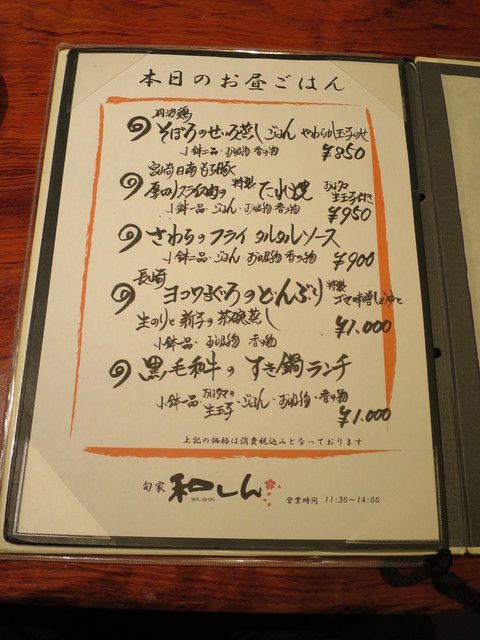 本日のお昼ごはん
丹波鶏
そぼろのせいろ蒸しごはん やわらか玉子のせ
小鉢二品・お吸物・香の物 ¥850
宮崎日南もち豚
厚切りスライス肉の特製たれ焼 生玉子付き
小鉢一品・ごはん・お吸物・香の物 ¥950
さわらのフライ タルタルソース
小鉢二品・ごはん お吸物 香の物 ¥900
長崎
ヨコワまぐろのどんぶり 特製ゴマ味噌しょうゆと
生のりと新子の茶碗蒸し
小鉢一品・お吸物 香の物 ¥1.000
黒毛和牛の すき鍋ランチ
小鉢一品・生玉子・ごはん・お吸物・香の物
¥1.000
上記の価格は消費税込みとなっております
旬家 和しん
WA-SHIN
営業時間 11:30~14:00